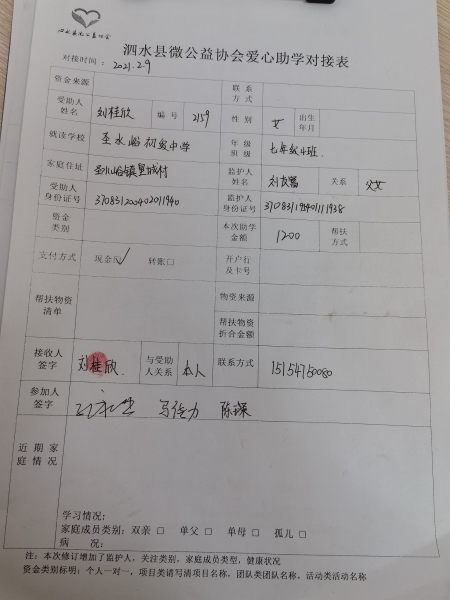 泗水县微公益协会
泗水县微公益协会爱心助学对接表
对接时间：2021.2.9
资金来源 联系方式
受助人姓名 刘桂欣 编号 2159 性别 女 出生年月
就读学校 圣水峪初级中学 年级班级 七年级4班
家庭住址 圣水峪镇皇城村 监护人姓名 关系 父女
受助人身份证号 监护人身份证号
资金类别 本次助学金额 1200 帮扶方式
支付方式 现金☑ 转账□ 开户行及卡号
帮扶物资清单 物资来源
帮扶物资折合金额
接收人签字 刘桂欣 与受助人关系 本人 联系方式 15154750080
参加人签字 陈琛
近期家庭情况
学习情况：
家庭成员类别：双亲 □ 单父 □ 单母 □ 孤儿 □
病 况： □
注：本次修订增加了监护人，关注类别，家庭成员类型，健康状况
资金类别标明：个人一对一，项目类请写清项目名称，团队类团队名称，活动类活动名称